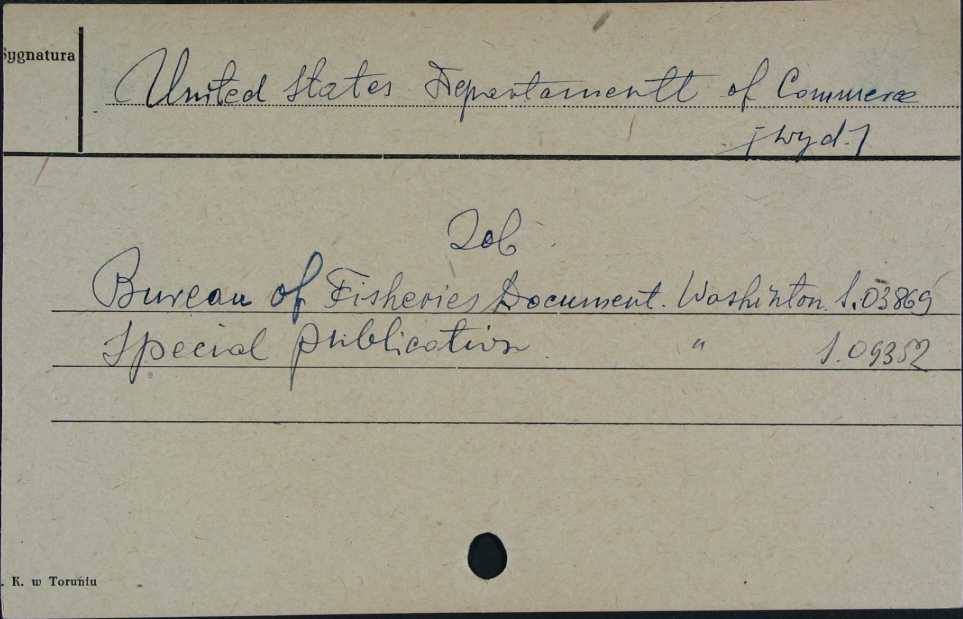 Sygnatura
United States Departamentt of Commerce
[wyd.]
Zob.
Bureau of Fisheries Document. Washinton. S.03869
Special publication. " S.09352
. K. w Toruniu